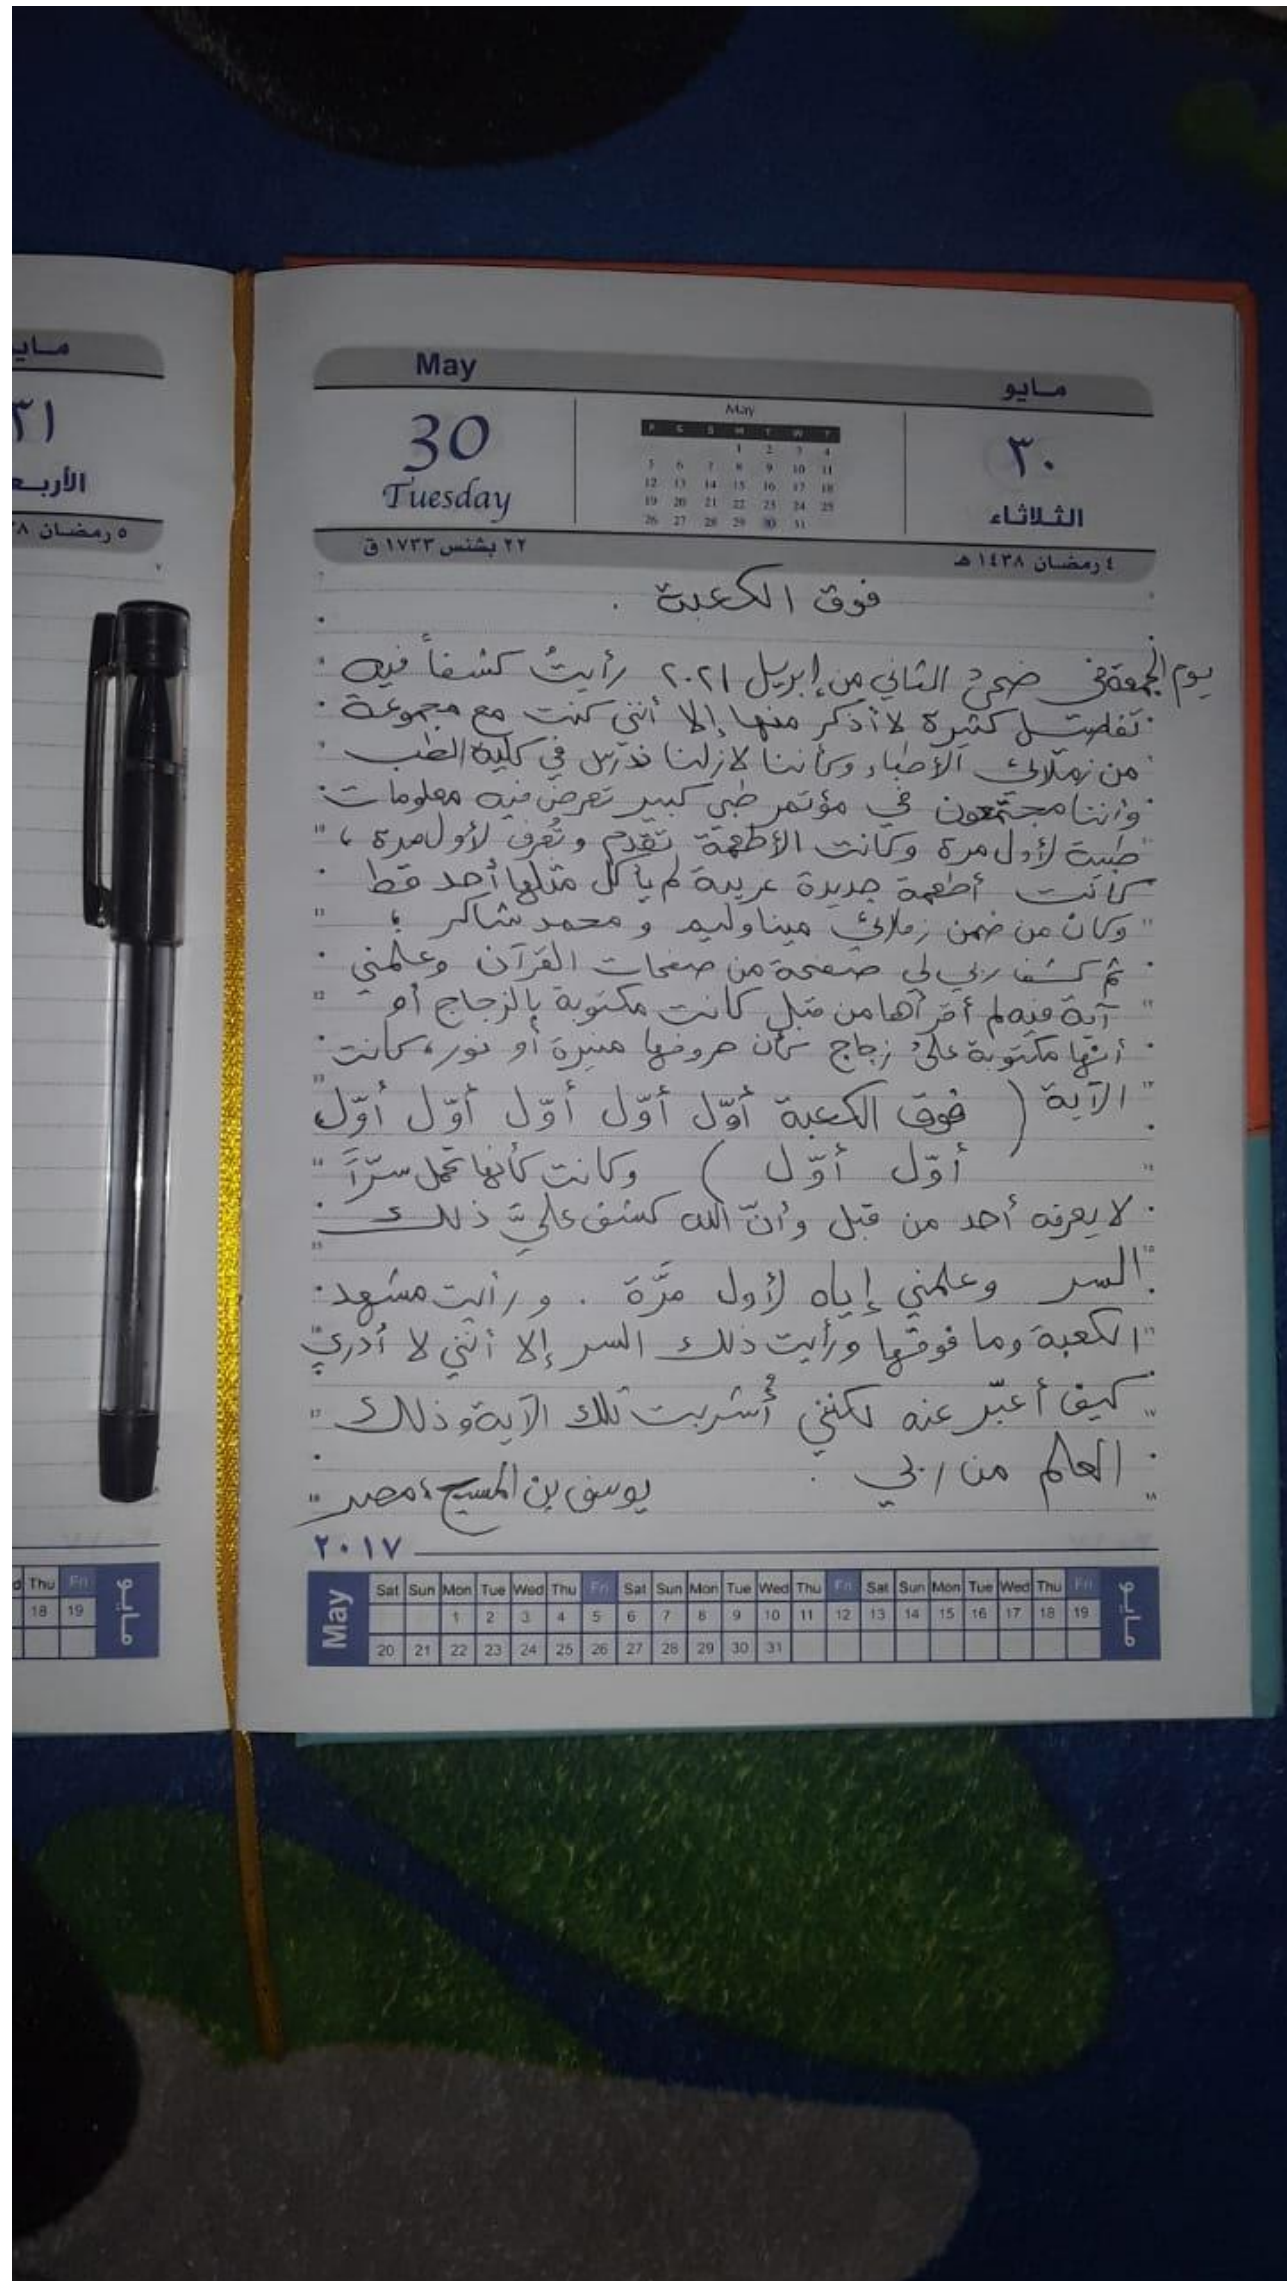 May
مايو
30
Tuesday
May
F S S M T W T
1 2 3 4
5 6 7 8 9 10 11
12 13 14 15 16 17 18
19 20 21 22 23 24 25
26 27 28 29 30 31
٣٠
الثلاثاء
٢٢ بشنس ١٧٣٣ ق
٤ رمضان ١٤٣٨ هـ
فوق الكعبة .
يوم الجمعة في ضحى الثاني من إبريل ٢٠٢١ رأيتُ كشفاً فيه
تفاصيل كثيرة لا أذكر منها إلا أنني كنت مع مجموعة
من زملائي الأطباء وكأننا لازلنا ندرس في كلية الطب
وأننا مجتمعون في مؤتمر طبي كبير تعرض فيه معلومات
طبية لأول مرة وكانت الأطعمة تقدم وتُعرف لأول مرة ،
كانت أطعمة جديدة غريبة لم يأكل مثلها أحد قط
وكان من ضمن زملائي مينا وليم و محمد شاكر ؛
ثم كشف ربي لي صفحة من صفحات القرآن وعلمني
آية فيه لم أقرأها من قبل كانت مكتوبة بالزجاج أو
أنها مكتوبة على زجاج كأن حروفها منيرة أو نور ، كانت
الآية ( فوق الكعبة أوّل أوّل أوّل أوّل أوّل
أوّل أوّل ) وكانت كأنها تحمل سرّاً
لا يعرفه أحد من قبل وأنّ الله كشف عليَّ ذلك
السر وعلمني إياه لأول مرَّة . ورأيت مشهد
الكعبة وما فوقها ورأيت ذلك السر إلا أنني لا أدري
كيف أعبّر عنه لكنني أُشربت تلك الآية وذلك
العلم من ربي .
يوسف بن المسيح ، مصر
٢٠١٧
May
Sat Sun Mon Tue Wed Thu Fri Sat Sun Mon Tue Wed Thu Fri Sat Sun Mon Tue Wed Thu Fri
1 2 3 4 5 6 7 8 9 10 11 12 13 14 15 16 17 18 19
20 21 22 23 24 25 26 27 28 29 30 31
مايو
٣١
٥ رمضان
Thu Fri
18 19
مايو